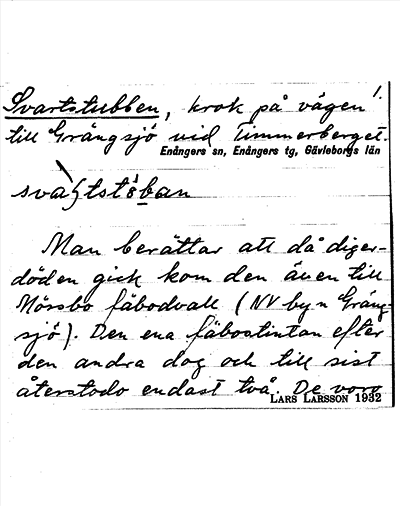 Svartstubben, krok på vägen 1.
till Grängsjö vid Timmerberget.
Enångers sn, Enångers tg, Gävleborgs län
Man berättar att då diger-
döden gick kom den även till
Mössbo fäbodvall (NV byn Gräng-
sjö). Den ena fäbostintan efter
den andra dog och till sist
återstodo endast två. De voro
LARS LARSSON 1932